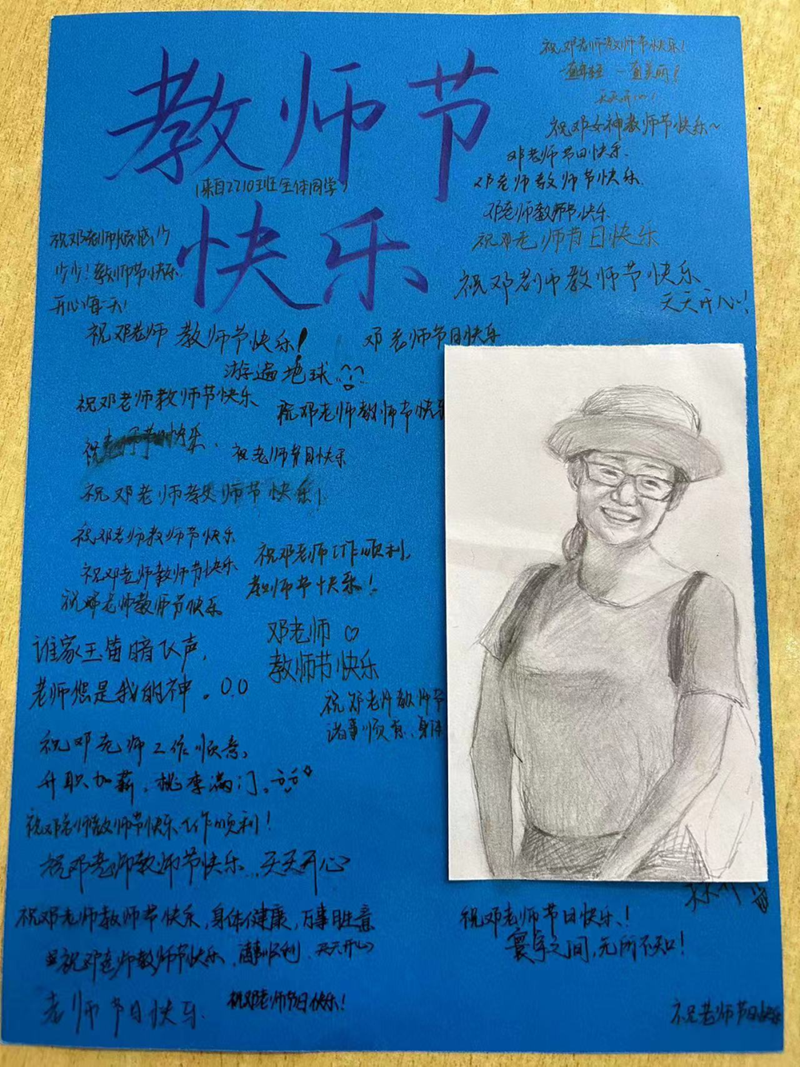 教师节
(来自2710班全体同学)
快乐
祝邓老师教师节快乐!
天天开心!
祝邓女神教师节快乐~
邓老师节日快乐.
邓老师教师节快乐.
邓老师教师节快乐
祝邓老师节日快乐
祝邓老师教师节快乐、
天天开心!
少少!教师节快乐
开心每天!
祝邓老师 教师节快乐!
邓老师节日快乐
游遍地球
祝邓老师教师节快乐
祝邓老师教师节快乐
祝老师节日快乐
祝老师节日快乐
祝邓老师教师节快乐!
祝邓老师教师节快乐
祝邓老师教师节快乐
祝邓老师教师节快乐
祝邓老师工作顺利,
教师节快乐!
邓老师♡
教师节快乐
谁家玉笛暗飞声,
老师您是我的神。
祝邓老师教师节
诸事顺
祝邓老师工作顺意,
升职加薪,桃李满门。
祝邓老师教师节快乐 工作顺利!
祝邓老师教师节快乐,天天开心
祝邓老师教师节快乐,身体健康,万事胜意
祝邓老师教师节快乐, 天天开心
老师节日快乐.
祝邓老师节日快乐!
祝邓老师节日快乐!
寰宇之间,无所不知!
祝老师节日快乐